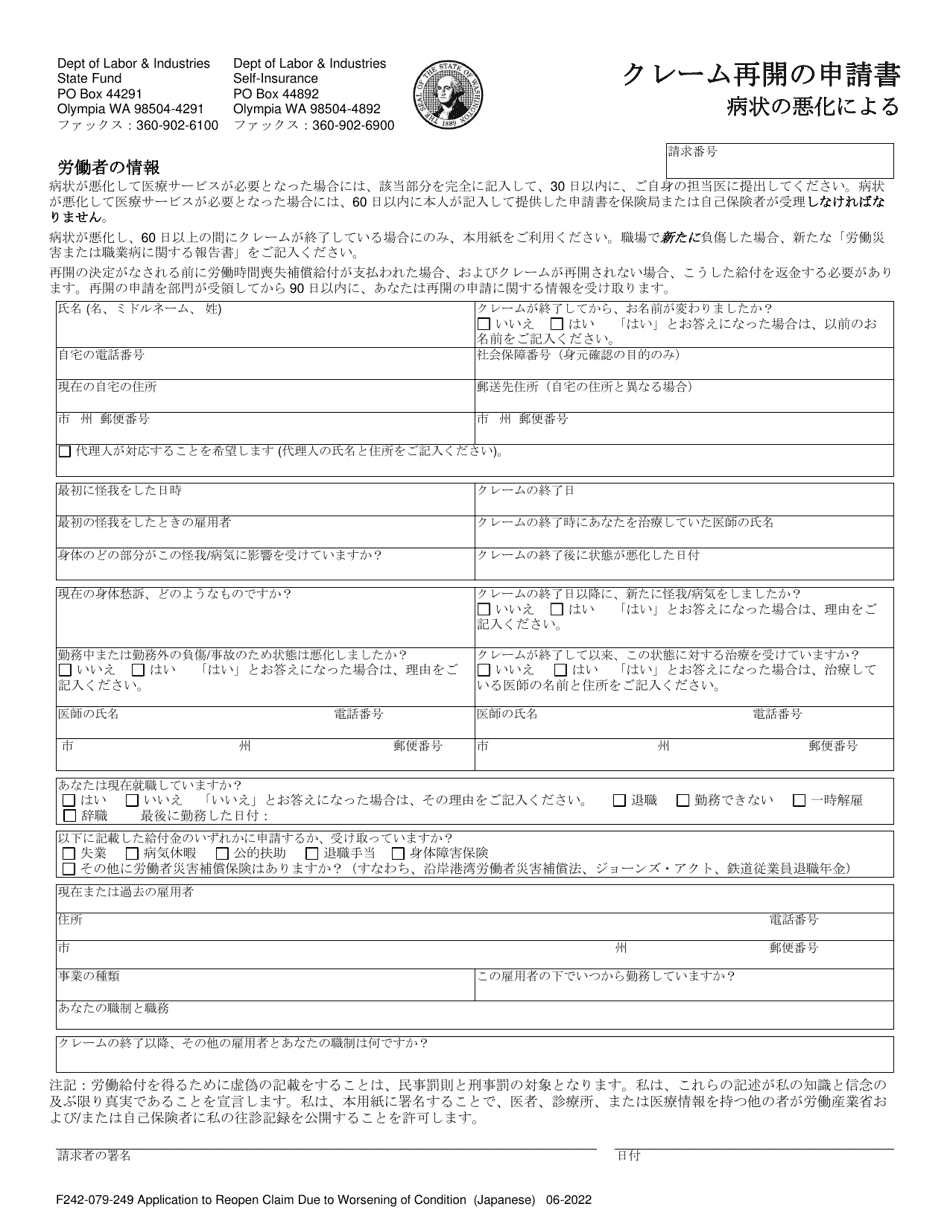 Dept of Labor & Industries
State Fund
PO Box 44291
Olympia WA 98504-4291
ファックス：360-902-6100
Dept of Labor & Industries
Self-Insurance
PO Box 44892
Olympia WA 98504-4892
ファックス：360-902-6900
THE SEAL OF THE STATE OF WASHINGTON
1889
クレーム再開の申請書
病状の悪化による
請求番号
労働者の情報
病状が悪化して医療サービスが必要となった場合には、該当部分を完全に記入して、30 日以内に、ご自身の担当医に提出してください。病状
が悪化して医療サービスが必要となった場合には、60 日以内に本人が記入して提供した申請書を保険局または自己保険者が受理しなければな
りません。
病状が悪化し、60 日以上の間にクレームが終了している場合にのみ、本用紙をご利用ください。職場で新たに負傷した場合、新たな「労働災
害または職業病に関する報告書」をご記入ください。
再開の決定がなされる前に労働時間喪失補償給付が支払われた場合、およびクレームが再開されない場合、こうした給付を返金する必要があり
ます。再開の申請を部門が受領してから 90 日以内に、あなたは再開の申請に関する情報を受け取ります。
氏名 (名、ミドルネーム、 姓)
クレームが終了してから、お名前が変わりましたか？
いいえ はい 「はい」とお答えになった場合は、以前のお
名前をご記入ください。
自宅の電話番号
社会保障番号（身元確認の目的のみ）
現在の自宅の住所
郵送先住所（自宅の住所と異なる場合）
市 州 郵便番号
市 州 郵便番号
代理人が対応することを希望します (代理人の氏名と住所をご記入ください)。
最初に怪我をした日時
クレームの終了日
最初の怪我をしたときの雇用者
クレームの終了時にあなたを治療していた医師の氏名
身体のどの部分がこの怪我/病気に影響を受けていますか？
クレームの終了後に状態が悪化した日付
現在の身体愁訴、どのようなものですか？
クレームの終了日以降に、新たに怪我/病気をしましたか？
いいえ はい 「はい」とお答えになった場合は、理由をご
記入ください。
勤務中または勤務外の負傷/事故のため状態は悪化しましたか？
いいえ はい 「はい」とお答えになった場合は、理由をご
記入ください。
クレームが終了して以来、この状態に対する治療を受けていますか？
いいえ はい 「はい」とお答えになった場合は、治療して
いる医師の名前と住所をご記入ください。
医師の氏名 電話番号
医師の氏名 電話番号
市 州 郵便番号
市 州 郵便番号
あなたは現在就職していますか？
はい いいえ 「いいえ」とお答えになった場合は、その理由をご記入ください。 退職 勤務できない 一時解雇
辞職 最後に勤務した日付：
以下に記載した給付金のいずれかに申請するか、受け取っていますか？
失業 病気休暇 公的扶助 退職手当 身体障害保険
その他に労働者災害補償保険はありますか？（すなわち、沿岸港湾労働者災害補償法、ジョーンズ・アクト、鉄道従業員退職年金）
現在または過去の雇用者
住所 電話番号
市 州 郵便番号
事業の種類
この雇用者の下でいつから勤務していますか？
あなたの職制と職務
クレームの終了以降、その他の雇用者とあなたの職制は何ですか？
注記：労働給付を得るために虚偽の記載をすることは、民事罰則と刑事罰の対象となります。私は、これらの記述が私の知識と信念の
及ぶ限り真実であることを宣言します。私は、本用紙に署名することで、医者、診療所、または医療情報を持つ他の者が労働産業省お
よび/または自己保険者に私の往診記録を公開することを許可します。
請求者の署名
日付
F242-079-249 Application to Reopen Claim Due to Worsening of Condition (Japanese) 06-2022